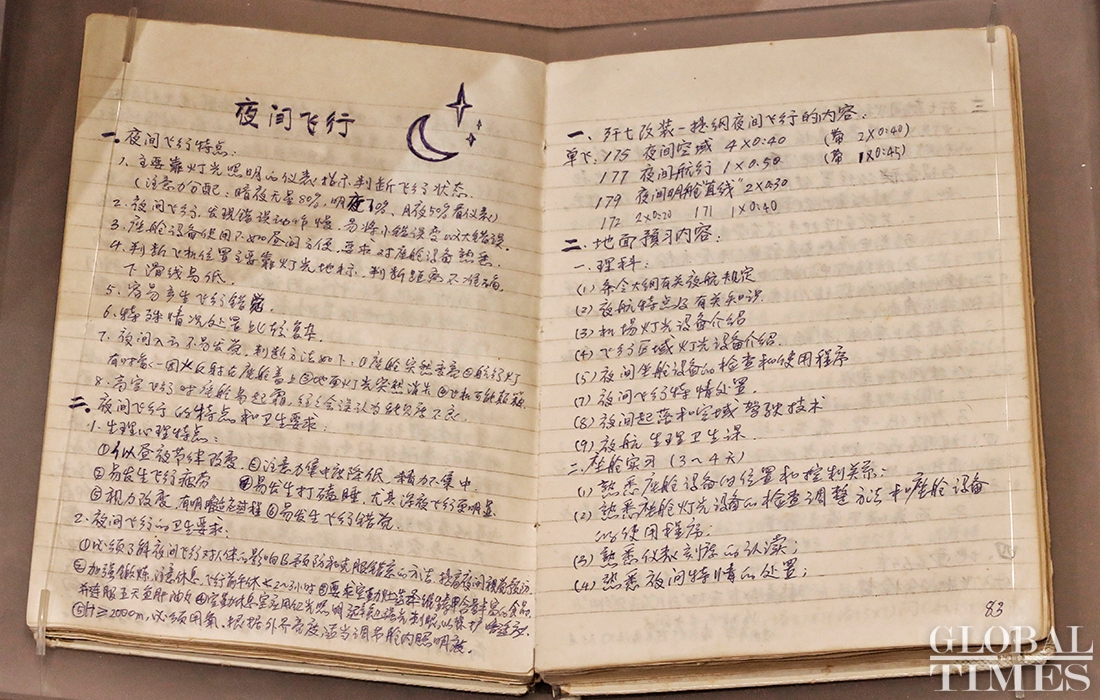 夜间飞行
一.夜间飞行特点:
1.主要靠灯光照明的仪表指示判断飞行状态.
(注意力分配:暗夜无星80%,明夜70%,月夜50%看仪表)
2.夜间飞行,发现错误动作慢,易将小错误变成大错误.
3.座舱设备使用不如昼间方便,要求对座舱设备熟悉.
4.判断飞机位置主要靠灯光地标,判断距离不准确,
下滑线易低.
5.容易产生飞行错觉.
6.特殊情况处置比较复杂.
7.夜间入云不易发觉,判断方法如下:①座舱突然变亮②航行灯
有时像一团火反射在座舱盖上③地面灯光突然消失④飞机可能颠簸.
8.高空飞行时座舱易起霜,
二.夜间飞行的特点和卫生要求:
1.生理心理特点:
①似昼夜节律改变.②注意力集中度降低,精力不集中
③易发生飞行疲劳 ④易发生打瞌睡,尤其深夜飞行更明显
⑤视力改变,有明暗适应过程⑥易发生飞行错觉.
2.夜间飞行的卫生要求:
①必须了解夜间飞行对人体的影响及预防和克服错觉的方法,提高夜间视觉能力
②加强锻炼,注意休息,飞行前午休 2~3小时③要在空勤灶选择维生素甲含量丰富的食品,
并连服五天鱼肝油丸④空勤休息室应用红光照明,避免强光刺激,以保护暗适应.
⑤H≥2000m,必须用氧,根据外界亮度适当调节舱内照明度.
三
一、歼七改装-提纲夜间飞行的内容:
单飞:175 夜间空域 4×0:40 (带 2×0:40)
177 夜间航行 1×0:50 (带 1×0:45)
179 夜间暗舱"直线" 2×0:30
172 2×0:20 171 1×0:40
二.地面预习内容:
一.理科:
(1)条令大纲有关夜航规定
(2)夜航特点及有关知识.
(3)机场灯光设备介绍
(4)飞行区域灯光设备介绍.
(5)夜间座舱设备的检查和使用程序
(7)夜间飞行特情处置.
(8)夜间起落和空域驾驶技术
(9)夜航生理卫生课.
二.座舱实习(3~4天)
(1)熟悉座舱设备的位置和控制关系:
(2)熟悉座舱灯光设备的检查调整方法和座舱设备
的使用程序:
(3)熟悉仪表刻度的认读;
(4)熟悉夜间特情的处置;
83
GLOBAL
TIMES